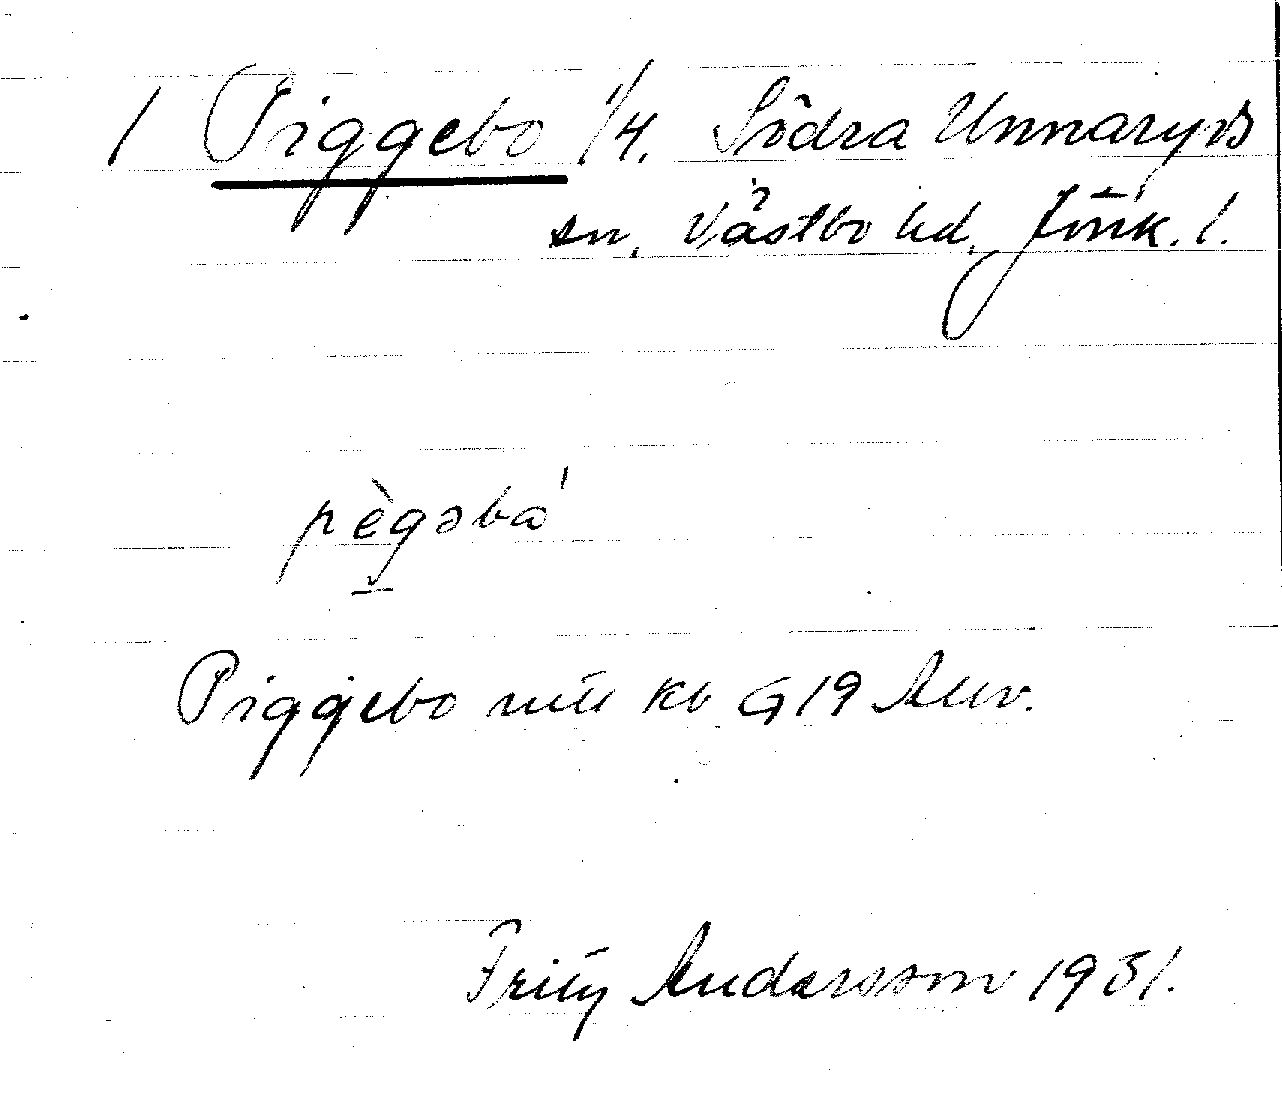 1 Piggebo 1/4. Södra Unnaryds
sn, Västbo hd, Jönk. l.
pègəbo'
Piggebo nu kb G19
Fritz Andersson 1931.